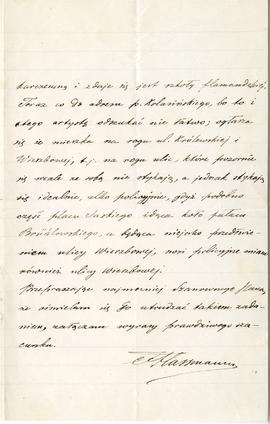 karczemną i zdaje się jest szkoły flamandzkiej.
Teraz co do adresu p. Kolasińskiego, bo to i
tego artystę odszukać nie łatwo; ogłasza
się że mieszka na rogu ul. Królewskiej i
Wierzbowej, t.j. na rogu ulic, które pozornie
się wcale ze sobą nie stykają, a jednak stykają
się idealnie, albo policyjnie, gdyż podobno
część placu Saskiego idąca koło pałacu
Brühlowskiego, a będąca niejako przedłuże-
niem ulicy Wierzbowej, nosi policyjne miano
również ulicy Wierzbowej.
Przepraszając najmocniej Szanownego Pana,
że ośmielam się Go utrudzać takiem zada-
niem, załączam wyrazy prawdziwego sza-
cunku.